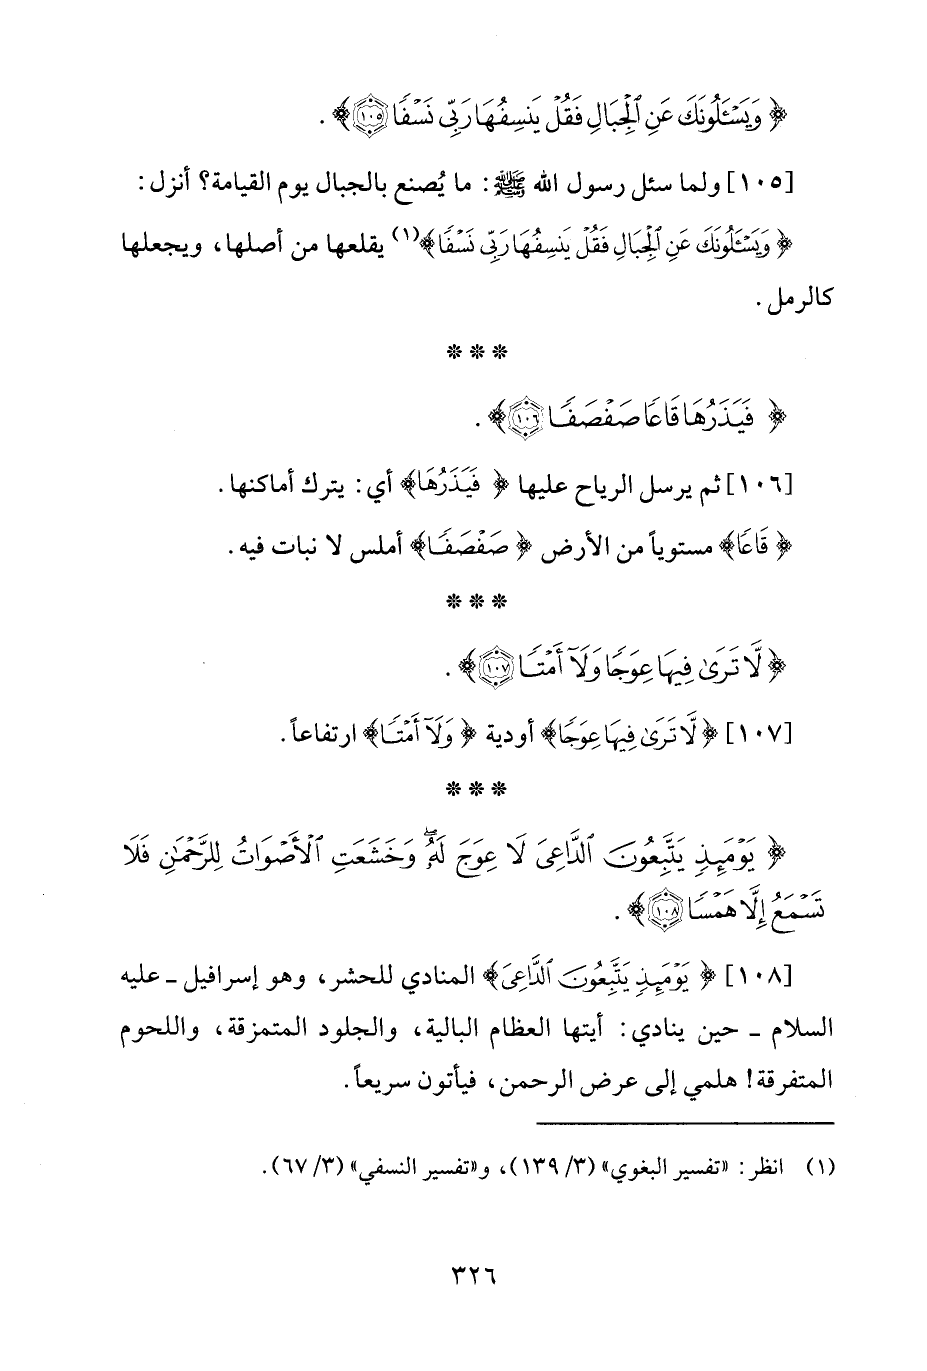 ﴿ وَيَسْـَٔلُونَكَ عَنِ ٱلْجِبَالِ فَقُلْ يَنسِفُهَا رَبِّى نَسْفًا ١٠٥ ﴾ .
[١٠٥] ولما سئل رسول الله ﷺ: ما يُصنع بالجبال يوم القيامة؟ أنزل:
﴿ وَيَسْـَٔلُونَكَ عَنِ ٱلْجِبَالِ فَقُلْ يَنسِفُهَا رَبِّى نَسْفًا﴾(١) يقلعها من أصلها، ويجعلها
كالرمل .
* * *
﴿ فَيَذَرُهَا قَاعًا صَفْصَفًا ١٠٦ ﴾ .
[١٠٦] ثم يرسل الرياح عليها ﴿ فَيَذَرُهَا﴾ أي: يترك أماكنها .
﴿ قَاعًا﴾ مستوياً من الأرض ﴿ صَفْصَفًا﴾ أملس لا نبات فيه .
* * *
﴿ لَّا تَرَىٰ فِيهَا عِوَجًا وَلَآ أَمْتًا ١٠٧ ﴾ .
[١٠٧] ﴿ لَّا تَرَىٰ فِيهَا عِوَجًا﴾ أودية ﴿ وَلَآ أَمْتًا﴾ ارتفاعاً .
* * *
﴿ يَوْمَئِذٍ يَتَّبِعُونَ ٱلدَّاعِىَ لَا عِوَجَ لَهُۥ ۖ وَخَشَعَتِ ٱلْأَصْوَاتُ لِلرَّحْمَـٰنِ فَلَا
تَسْمَعُ إِلَّا هَمْسًا ١٠٨ ﴾ .
[١٠٨] ﴿ يَوْمَئِذٍ يَتَّبِعُونَ ٱلدَّاعِىَ﴾ المنادي للحشر، وهو إسرافيل ـ عليه
السلام ـ حين ينادي: أيتها العظام البالية، والجلود المتمزقة، واللحوم
المتفرقة! هلمي إلى عرض الرحمن، فيأتون سريعاً .
(١) انظر: «تفسير البغوي» (٣/ ١٣٩)، و«تفسير النسفي» (٣/ ٦٧).
٣٢٦